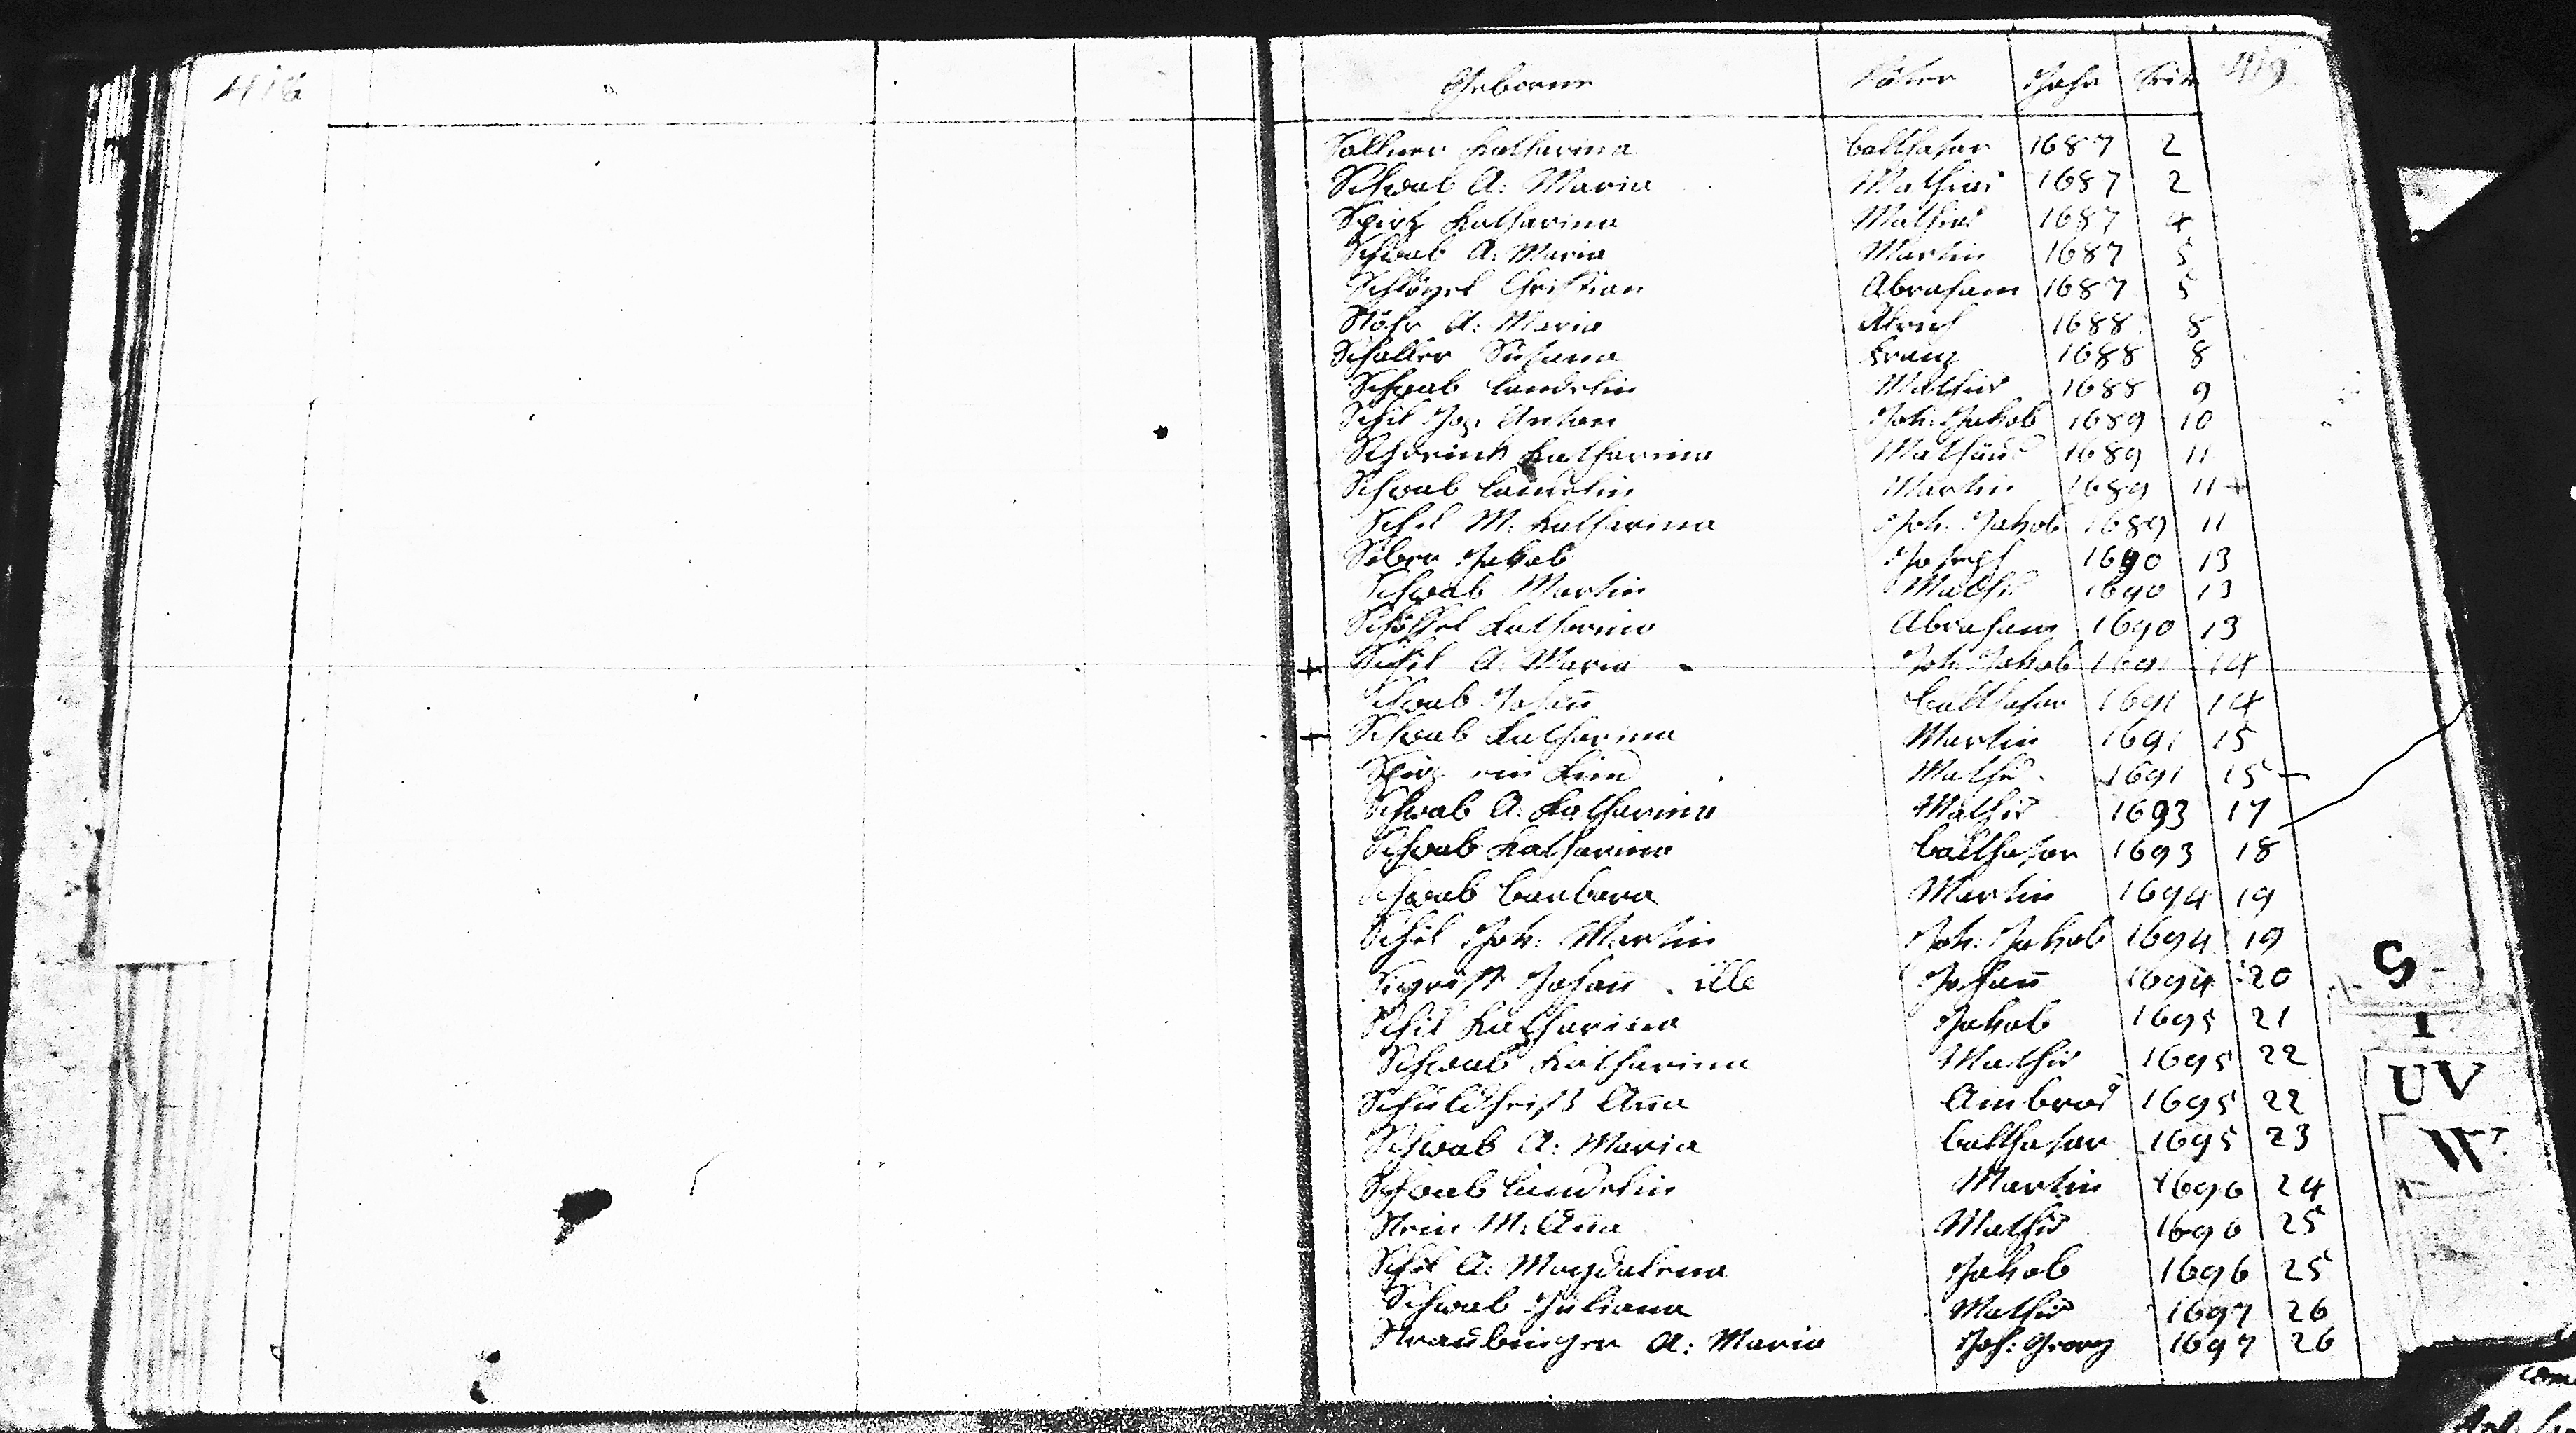 416
Geborne Väter Jahr Seite 419
Sollner Katharina Balthasar 1687 2
Schwab A: Maria Mathias 1687 2
Spirtz Katharina Mathias 1687 4
Schwab A: Maria Martin 1687 5
Schlögel Christian Abraham 1687 5
Stöhr A: Maria Ulrich 1688 8
Schaller Susana Franz 1688 8
Schwab Landelin Mathias 1688 9
Schil Jos. Anton Joh: Jakob 1689 10
Katharina Mathäus 1689 11
Schwab Landelin Martin 1689 11 +
Schil M: Katharina Joh: Jakob 1689 11
Jakob Joseph 1690 13
Schwab Martin Mathis 1690 13
Katharina Abraham 1690 13
+ Schil A: Maria Joh: Jakob 1691 14
Schwab Johan̄ Balthasar 1691 14
+ Schwab Katharina Martin 1691 15
Spirz ein Kind Mathis 1691 15
Schwab A: Katharina Mathis 1693 17
Schwab Katharina Balthasar 1693 18
Schwab Barbara Martin 1694 19
Schil Joh: Martin Joh: Jakob 1694 19
Sigrist Johan̄ ille Johan̄ 1694 20
Schil Katharina Jakob 1695 21
Schwab Katharina Mathis 1695 22
Schuldheiß An̄a Ambros 1695 22
Schwab A: Maria Balthasar 1695 23
Schwab Landelin Martin 1696 24
Stein M: An̄a Mathis 1696 25
Schil A: Magdalena Jakob 1696 25
Schwab Juliana Mathis 1697 26
Straubinger A: Maria Joh: Georg 1697 26
S
T
UV
W